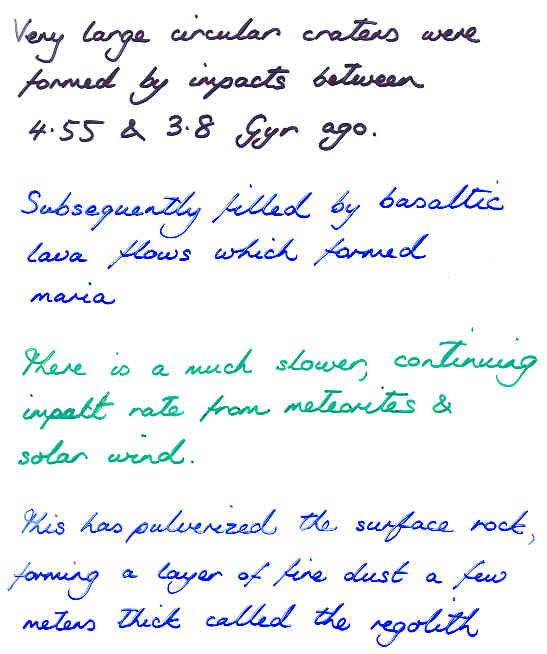 Very large circular craters were
formed by impacts between
4.55 & 3.8 Gyr ago.
Subsequently filled by basaltic
lava flows which formed
maria
There is a much slower, continuing
impact rate from meteorites &
solar wind.
This has pulverized the surface rock,
forming a layer of fine dust a few
meters thick called the regolith